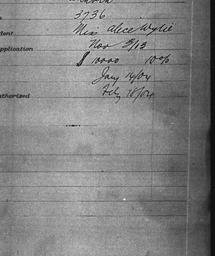 3736
dent Miss Alice Wylie
pplication Nov 5/13
$ 1000 10%
Jany 14/04
uthorized July 18/04